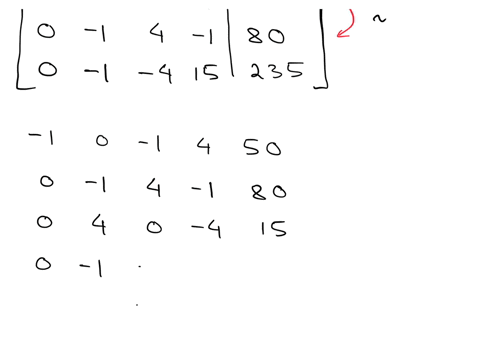 0 -1 4 -1 | 80 ~
0 -1 -4 15 | 235
-1 0 -1 4 50
0 -1 4 -1 80
0 4 0 -4 15
0 -1 .
.